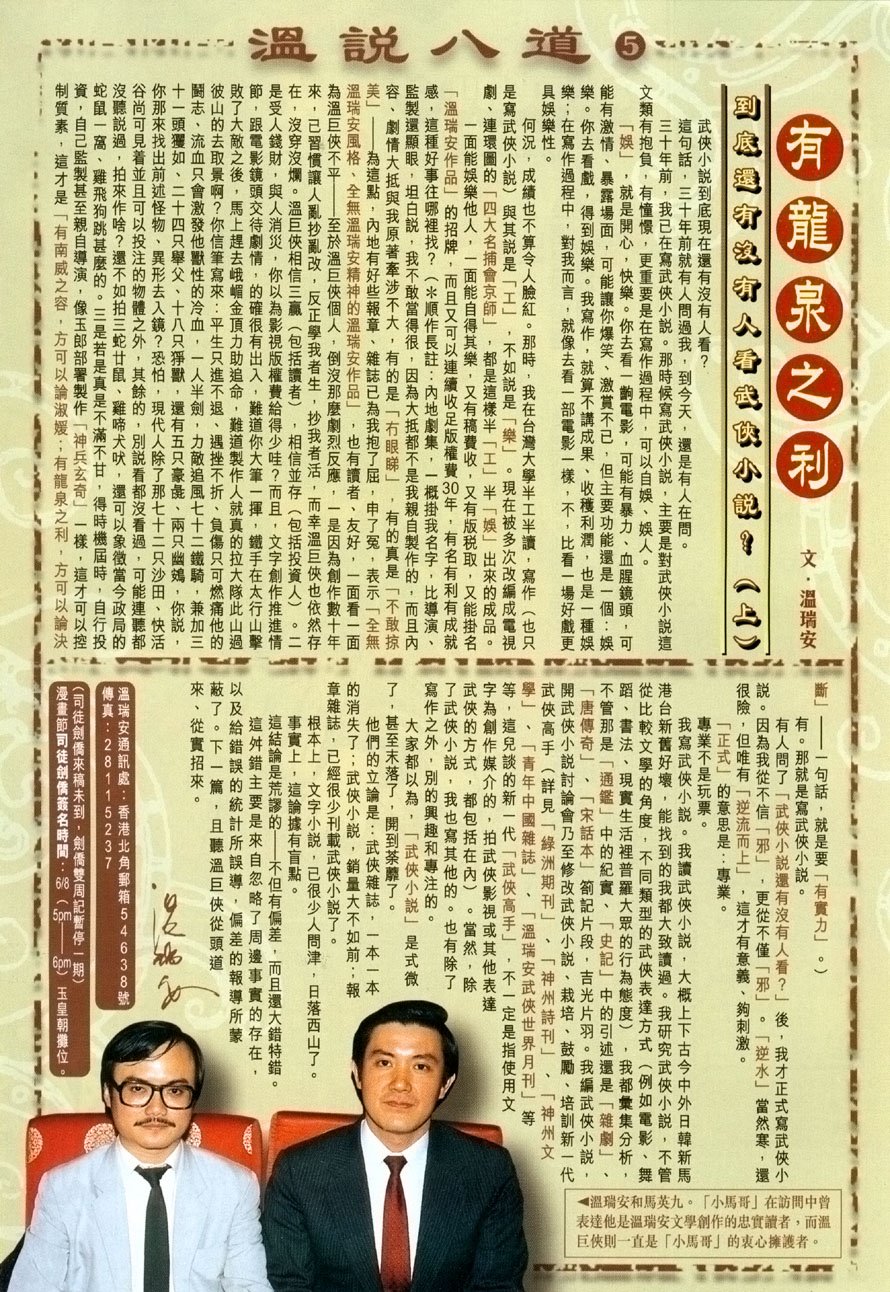 溫說八道 5
有龍泉之利
到底還有沒有人看武俠小說？（上）
文·溫瑞安
武俠小說到底現在還有沒有人看？
這句話，三十年前就有人問過我，到今天，還是有人在問。
三十年前，我已在寫武俠小說。那時候寫武俠小說，主要是對武俠小說這
文類有抱負，有憧憬，更重要是在寫作過程中，可以自娛、娛人。
「娛」，就是開心，快樂。你去看一齣電影，可能有暴力、血腥鏡頭，可
能有激情、暴露場面，可能讓你爆笑、激賞不已，但主要功能還是一個：娛
樂。你去看戲，得到娛樂。我寫作，就算不講成果、收穫利潤，也是一種娛
樂；在寫作過程中，對我而言，就像去看一部電影一樣，不，比看一場好戲更
具娛樂性。
何況，成績也不算令人臉紅。那時，我在台灣大學半工半讀，寫作（也只
是寫武俠小說）與其說是「工」，不如說是「樂」。現在被多次改編成電視
劇、連環圖的「四大名捕會京師」，都是這樣半「工」半「娛」出來的成品。
一面能娛樂他人，一面能自得其樂，又有稿費收，又有版稅取，又能掛名
「溫瑞安作品」的招牌，而且又可以連續收足版權費30年，有名有利有成就
感，這種好事往哪裡找？（＊順作長註：內地劇集，一概掛我名字，比導演、
監製還顯眼，坦白說，我不敢當得很，因為大抵都不是我親自製作的，而且內
容、劇情大抵與我原著牽涉不大，有的是「冇眼睇」，有的真是「不敢掠
美」——為這點，內地有好些報章、雜誌已為我抱了屈，申了冤，表示「全無
溫瑞安風格、全無溫瑞安精神的溫瑞安作品」，也有讀者、友好，一面看一面
為溫巨俠不平——至於溫巨俠個人，倒沒那麼劇烈反應，一是因為創作數十年
來，已習慣讓人亂抄亂改，反正學我者生，抄我者活，而幸溫巨俠也依然存
在，沒穿沒爛。溫巨俠相信三贏（包括讀者），相信並存（包括投資人）。二
是受人錢財，與人消災，你以為影視版權費給得少哇？而且，文字創作推進情
節，跟電影鏡頭交待劇情，的確很有出入，難道你大筆一揮，鐵手在太行山擊
敗了大敵之後，馬上趕去峨嵋金頂力助追命，難道製作人就真的拉大隊此山過
彼山的去取景啊？你信筆寫來：平生只進不退、遇挫不折、負傷只可燃痛他的
鬭志、流血只會激發他獸性的冷血，一人半劍，力敵追風七十二鐵騎，兼加三
十一頭玃如、二十四隻舉父、十八只猙獸，還有五只豪彘、兩只幽鴳，你說，
你那來找出前述怪物、異形去入鏡？恐怕，現代人除了那七十二只沙田、快活
谷尚可見着並且可以投注的物體之外，其餘的，別說看都沒看過，可能連聽都
沒聽說過，拍來作啥？還不如拍三蛇廿鼠、雞啼犬吠，還可以象徵當今政局的
蛇鼠一窩、雞飛狗跳甚麼的。三是若是真是不滿不甘，得時機屆時，自行投
資，自己監製甚至親自導演，像玉郎部署製作「神兵玄奇」一樣，這才可以控
制質素，這才是「有南威之容，方可以論淑媛；有龍泉之利，方可以論決
斷」——一句話，就是要「有實力」。）
有。那就是寫武俠小說。
有人問了「武俠小說還有沒有人看？」後，我才正式寫武俠小
說。因為我從不信「邪」，更從不懂「邪」。「逆水」當然寒，還
很險，但唯有「逆流而上」，這才有意義、夠刺激。
「正式」的意思是：專業。
專業不是玩票。
我寫武俠小說。我讀武俠小說，大概上下古今中外日韓新馬
港台新舊好壞，能找到的我都大致讀過。我研究武俠小說，不管
從比較文學的角度，不同類型的武俠表達方式（例如電影、舞
蹈、書法、現實生活裡普羅大眾的行為態度），我都彙集分析，
不管那是「通鑑」中的紀實、「史記」中的引述還是「雜劇」、
「唐傳奇」、「宋話本」箚記片段，吉光片羽。我編武俠小說，
開武俠小說討論會乃至修改武俠小說、栽培、鼓勵、培訓新一代
武俠高手（詳見「綠洲期刊」、「神州詩刊」、「神州文
學」、「青年中國雜誌」、「溫瑞安武俠世界月刊」等
等，這兒談的新一代「武俠高手」，不一定是指使用文
字為創作媒介的，拍武俠影視或其他表達
武俠的方式，都包括在內）。當然，除
了武俠小說，我也寫其他的。也有除了
寫作之外，別的興趣和專注的。
大家都以為，「武俠小說」是式微
了，甚至末落了，開到荼蘼了。
他們的立論是：武俠雜誌，一本一本
的消失了；武俠小說，銷量大不如前；報
章雜誌，已經很少刊載武俠小說了。
根本上，文字小說，已很少人問津，日落西山了。
事實上，這論據有盲點。
這結論是荒謬的——不但有偏差，而且還大錯特錯。
這舛錯主要是來自忽略了周邊事實的存在，
以及給錯誤的統計所誤導，偏差的報導所蒙
蔽了。下一篇，且聽溫巨俠從頭道
來、從實招來。
溫瑞安通訊處：香港北角郵箱54638號
傳真：28115237
（司徒劍僑來稿未到，劍僑雙周記暫停一期）
漫畫節司徒劍僑簽名時間：6/8（5pm——6pm）玉皇朝攤位。
◀溫瑞安和馬英九。「小馬哥」在訪問中曾
表達他是溫瑞安文學創作的忠實讀者，而溫
巨俠則一直是「小馬哥」的衷心擁護者。